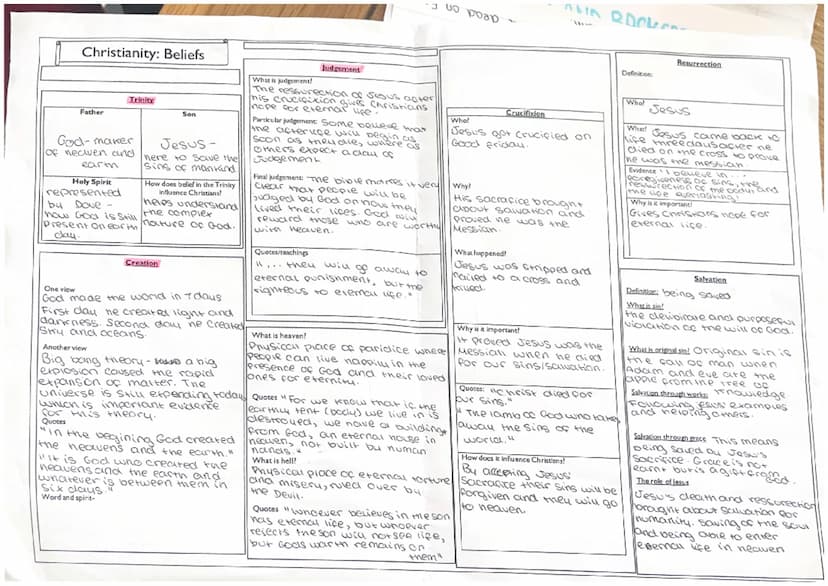 Christianity: Beliefs
Trinity
Father
God-maker
of heaven and
earth
Son
Jesus -
here to save the
sins of mankind.
Holy Spirit
represented
by Dove -
how God is still
present on earth
day.
How does belief in the Trinity
influence Christians?
helps understand
the complex
nature of God.
Creation
One view
God made the world in 7 days
First day he created light and
darkness. Second day he created
sky and oceans.
Another view
Big bang theory - a big
explosion caused the rapid
expansion of matter. The
universe is still expending today
which is important evidence
for this theory.
Quotes
"In the begining God created
the heavens and the earth."
"It is God who created the
heavens and the earth and
whatever is between them in
six days."
Word and spirit-
Judgement
What is judgement?
The ressurection of Jesus after
his crucifixion gives Christians
hope for eternal life.
Particular judgement: Some believe that
the afterlife will begin as
soon as they die, where as
others expect a day of
judgement.
Final judgement: The bible makes it very
clear that people will be
judged by God on how they
lived their lives. God will
reward those who are worthy
with Heaven.
Quotes/teachings
"... they will go away to
eternal punishment, but the
righteous to eternal life."
What is heaven?
Physical place of paridice where
people can live happily in the
presence of God and their loved
ones for eternity.
Quotes "For we know that if the
earthly tent (body) we live in is
destroyed, we have a building
from God, an eternal house in
heaven, not built by human
hands."
What is hell?
Physical place of eternal torture
and misery, ruled over by
the Devil.
Quotes "Whoever believes in the son
has eternal life, but whoever
rejects the son will not see life,
but Gods warth remains on
them"
Crucifixion
Who?
Jesus got crucified on
Good friday.
Why?
His sacrifice brought
about salvation and
proved he was the
Messiah.
What happened?
Jesus was stripped and
nailed to a cross and
killed.
Why is it important?
It proved Jesus was the
Messiah when he died
for our sins/salvation.
Quotes: "Christ died for
our sins."
"The lamb of God who takes
away the sins of the
world."
How does it influence Christians?
By accepting Jesus'
sacrafise their sins will be
forgiven and they will go
to heaven.
Resurrection
Definition:
Who? Jesus
What? Jesus came back to
life three days after he
died on the cross to prove
he was the messiah
Evidence "I believe in...
forgiveness of sins, the
resurrection of the body and
the life everlasting"
Why is it important?
Gives Christians hope for
eternal life.
Salvation
Definition: being saved
What is sin?
the deliberate and purposeful
violation of the will of God.
What is original sin? Original sin is
the fall of man when
Adam and eve ate the
apple from the tree of
knowledge
Salvation through works:
Following Jesus' examples
and helping others.
Salvation through grace This means
being saved by Jesus's
sacrifice - Grace is not
earnt but is a gift from God.
The role of Jesus
Jesus's death and ressurection
brought about salvation for
humanity. Saving of the soul
and being able to enter
eternal life in heaven